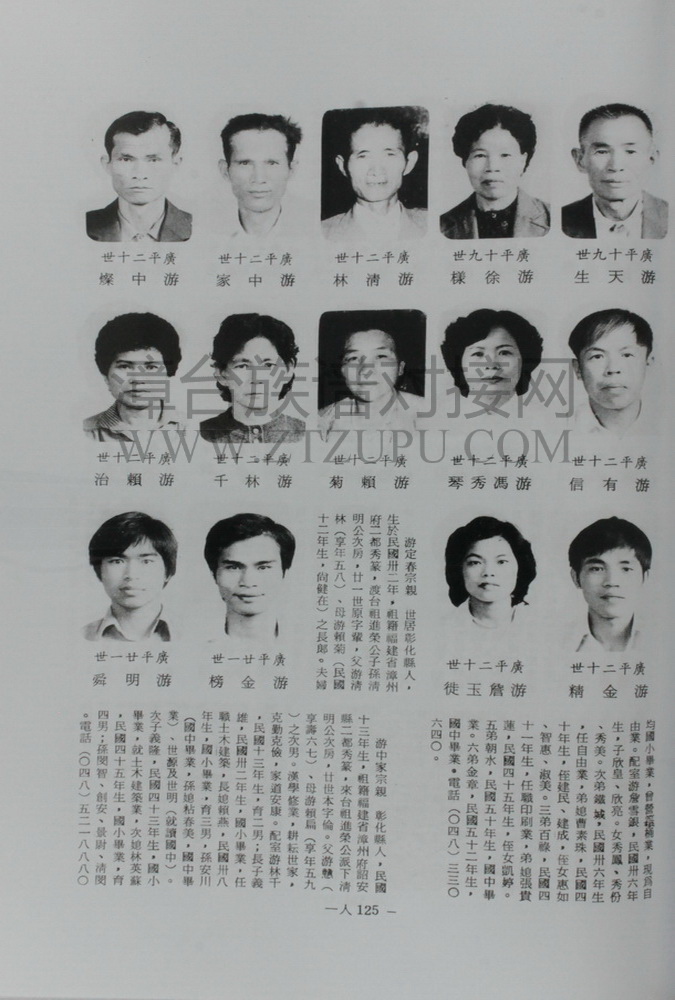 廣平十九世
游天生
廣平十九世
游徐樣
廣平二十世
游清林
廣平二十世
游中家
廣平二十世
游中燦
廣平二十世
游有信
廣平二十世
游馮秀琴
廣平二十世
游賴菊
廣平二十世
游林千
廣平二十世
游賴治
廣平二十世
游金精
廣平二十世
游詹玉
廣平廿一世
游金榜
廣平廿一世
游明舜
游定春宗親　世居彰化縣人，
生於民國卅二年，祖籍福建省漳州
府二都秀篆，渡台祖進榮公子孫清
明公次房，廿一世原字輩，父游清
林（享年五八）、母游賴菊（民國
十二年生，尚健在）之長郎。夫婦
均國小畢業，曾營業，現為自
由業。配室游詹雪銀，民國卅六年
生，子欣皇、欣亮。女秀鳳、秀份
、秀美。次弟鐵城，民國卅六年生
，任自由業，弟媳曹素珠，民國四
十年生，侄建民、建成，侄女惠如
、智惠、淑美。三弟百祿，民國四
十一年生，任職印刷業，弟媳張貴
蓮，民國四十五年生，侄女凱婷。
五弟朝水，民國五十年生，國中畢
業。六弟金章，民國五十二年生，
國中畢業。電話（○四八）三三○
六四○。
游中家宗親　彰化縣人，民國
十三年生，祖籍福建省漳州府詔安
縣二都秀篆，來台祖進榮公派下清
明公次房，廿世本字倫。父游戇（
享壽六七）、母游賴扁（享年五九
）之次男。漢學修業，耕耘世家，
克勤克儉，家道安康。配室游林千
，民國十三年生，育二男；長子義
雄，民國卅二年生，國小畢業，任
職土木建築，長媳賴燕，民國卅八
年生，國小畢業，育三男，孫安川
（國中畢業，孫媳粘春美，國中畢
業）、世源及世明（就讀國中）。
次子義隆，民國四十三年生，國小
畢業，就土木建築業，次媳林英蘇
，民國四十五年生，國小畢業，育
四男；孫閔智、創安、景尉、清閔
。電話（○四八）五二一八八八○
一人 125 －
漳台族谱对接网
WWW.ZTZUPU.COM